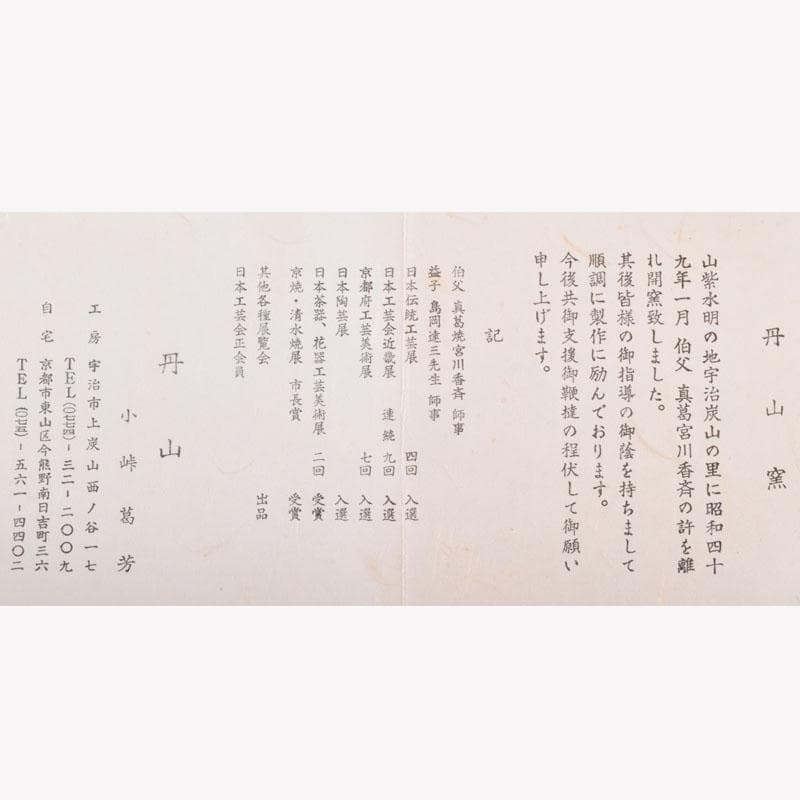 丹山窯
山紫水明の地宇治炭山の里に昭和四十
九年一月 伯父 真葛宮川香斉の許を離
れ開窯致しました。
其後皆様の御指導の御蔭を持ちまして
順調に製作に励んでおります。
今後共御支援御鞭撻の程伏して御願い
申し上げます。
記
伯父 真葛焼宮川香斉 師事
益子 島岡達三先生 師事
日本伝統工芸展 四回 入選
日本工芸会近畿展 連続 九回 入選
京都府工芸美術展 七回 入選
日本陶芸展 入選
日本茶器、花器工芸美術展 二回 受賞
京焼・清水焼展 市長賞 受賞
其他各種展覧会 出品
日本工芸会正会員
丹山
小峠葛芳
工房 宇治市上炭山西ノ谷一七
TEL(〇七七四)-三二-二〇〇九
自宅 京都市東山区今熊野南日吉町三六
TEL(〇七五)-五六一-四四〇二